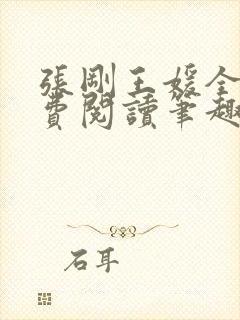 張剛王媛全
費閱讀筆趣
石耳